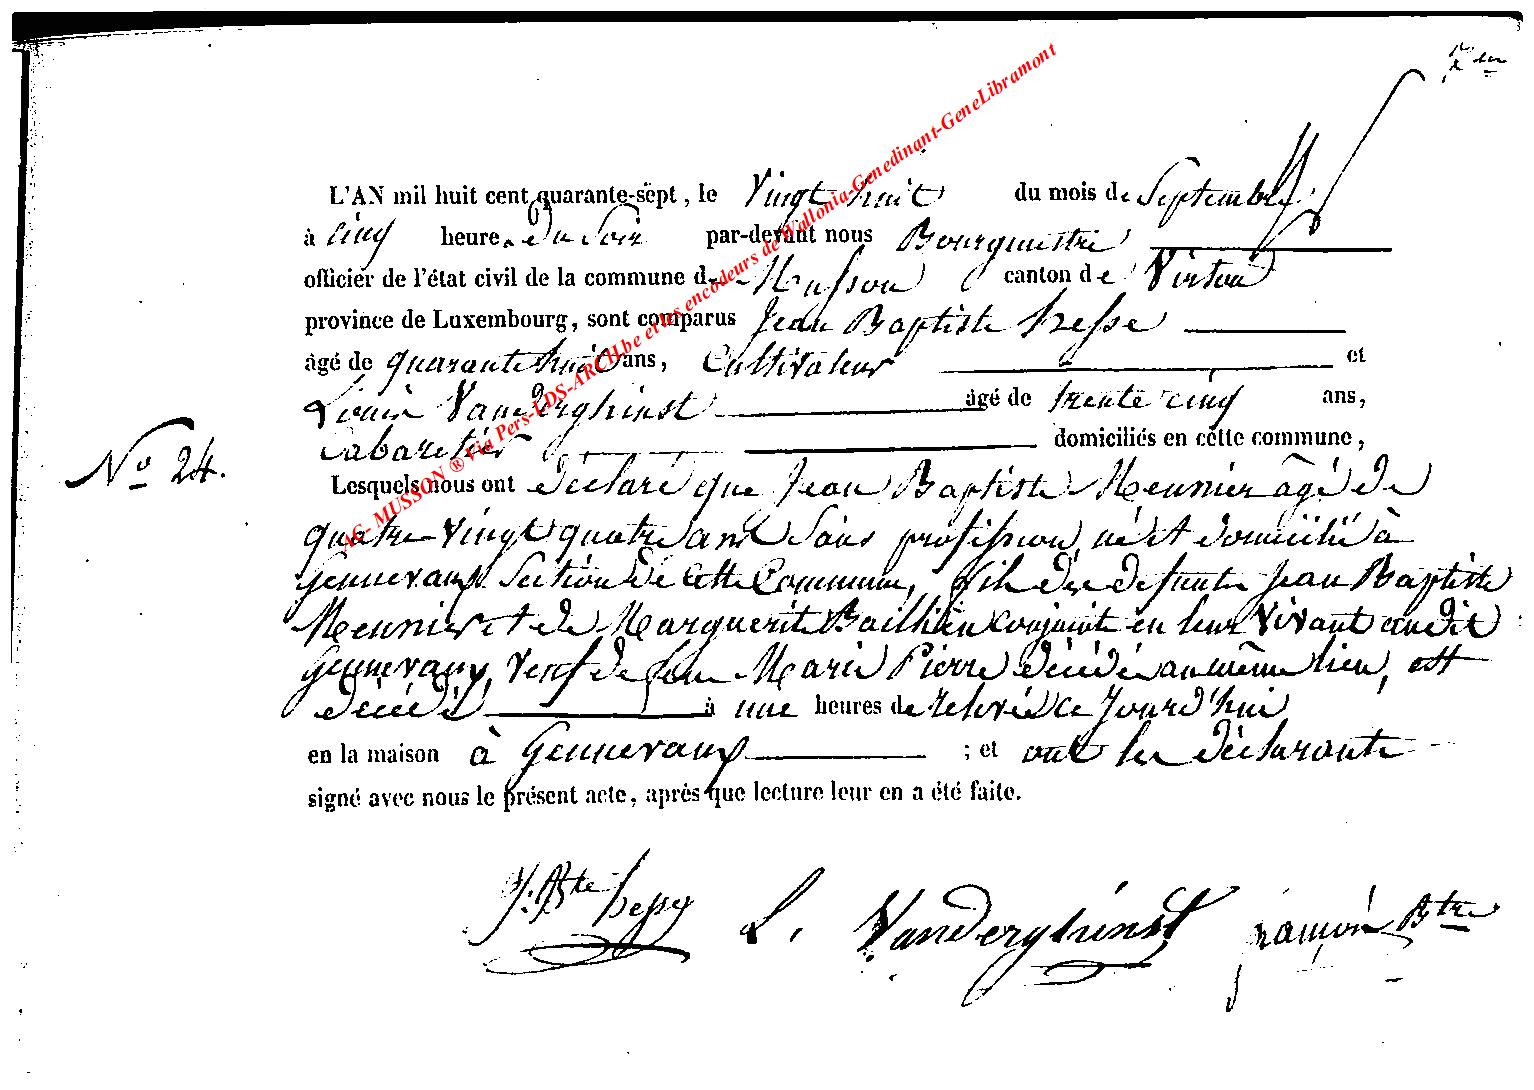 L'AN mil huit cent quarante-sept, le Vingt huit du mois de Septembre
à cinq heures du Soir par-devant nous Bourgmestre
officier de l'état civil de la commune de Musson canton de Virton
province de Luxembourg, sont comparus Jean Baptiste hesse
âgé de quarante huit ans, Cultivateur et
Louis Vanderghinst âgé de trente cinq ans,
Cabaretier domiciliés en cette commune,
N° 24.
Lesquels nous ont déclaré que Jean Baptiste Meunier âgé de
quatre vingt quatre ans Sans profession, né et domicilié à
Gennevaux Section de cette Commune, fils des defunts Jean Baptiste
Meunier et de Marguerite Baillieu conjoints en leur vivant audit
Gennevaux, veuf de feue Marie Pierre décédée au même lieu, est
décédé à une heures de relevée ce jourd'hui
en la maison à Gennevaux ; et ont les déclarants
signé avec nous le présent acte, après que lecture leur en a été faite.
J. Bte hesse L. Vanderghinst Btre
AG- MUSSON ® Via Pers-LDS-ARCH.be et les encodeurs de Wallonia-Genedinant-GeneLibramont